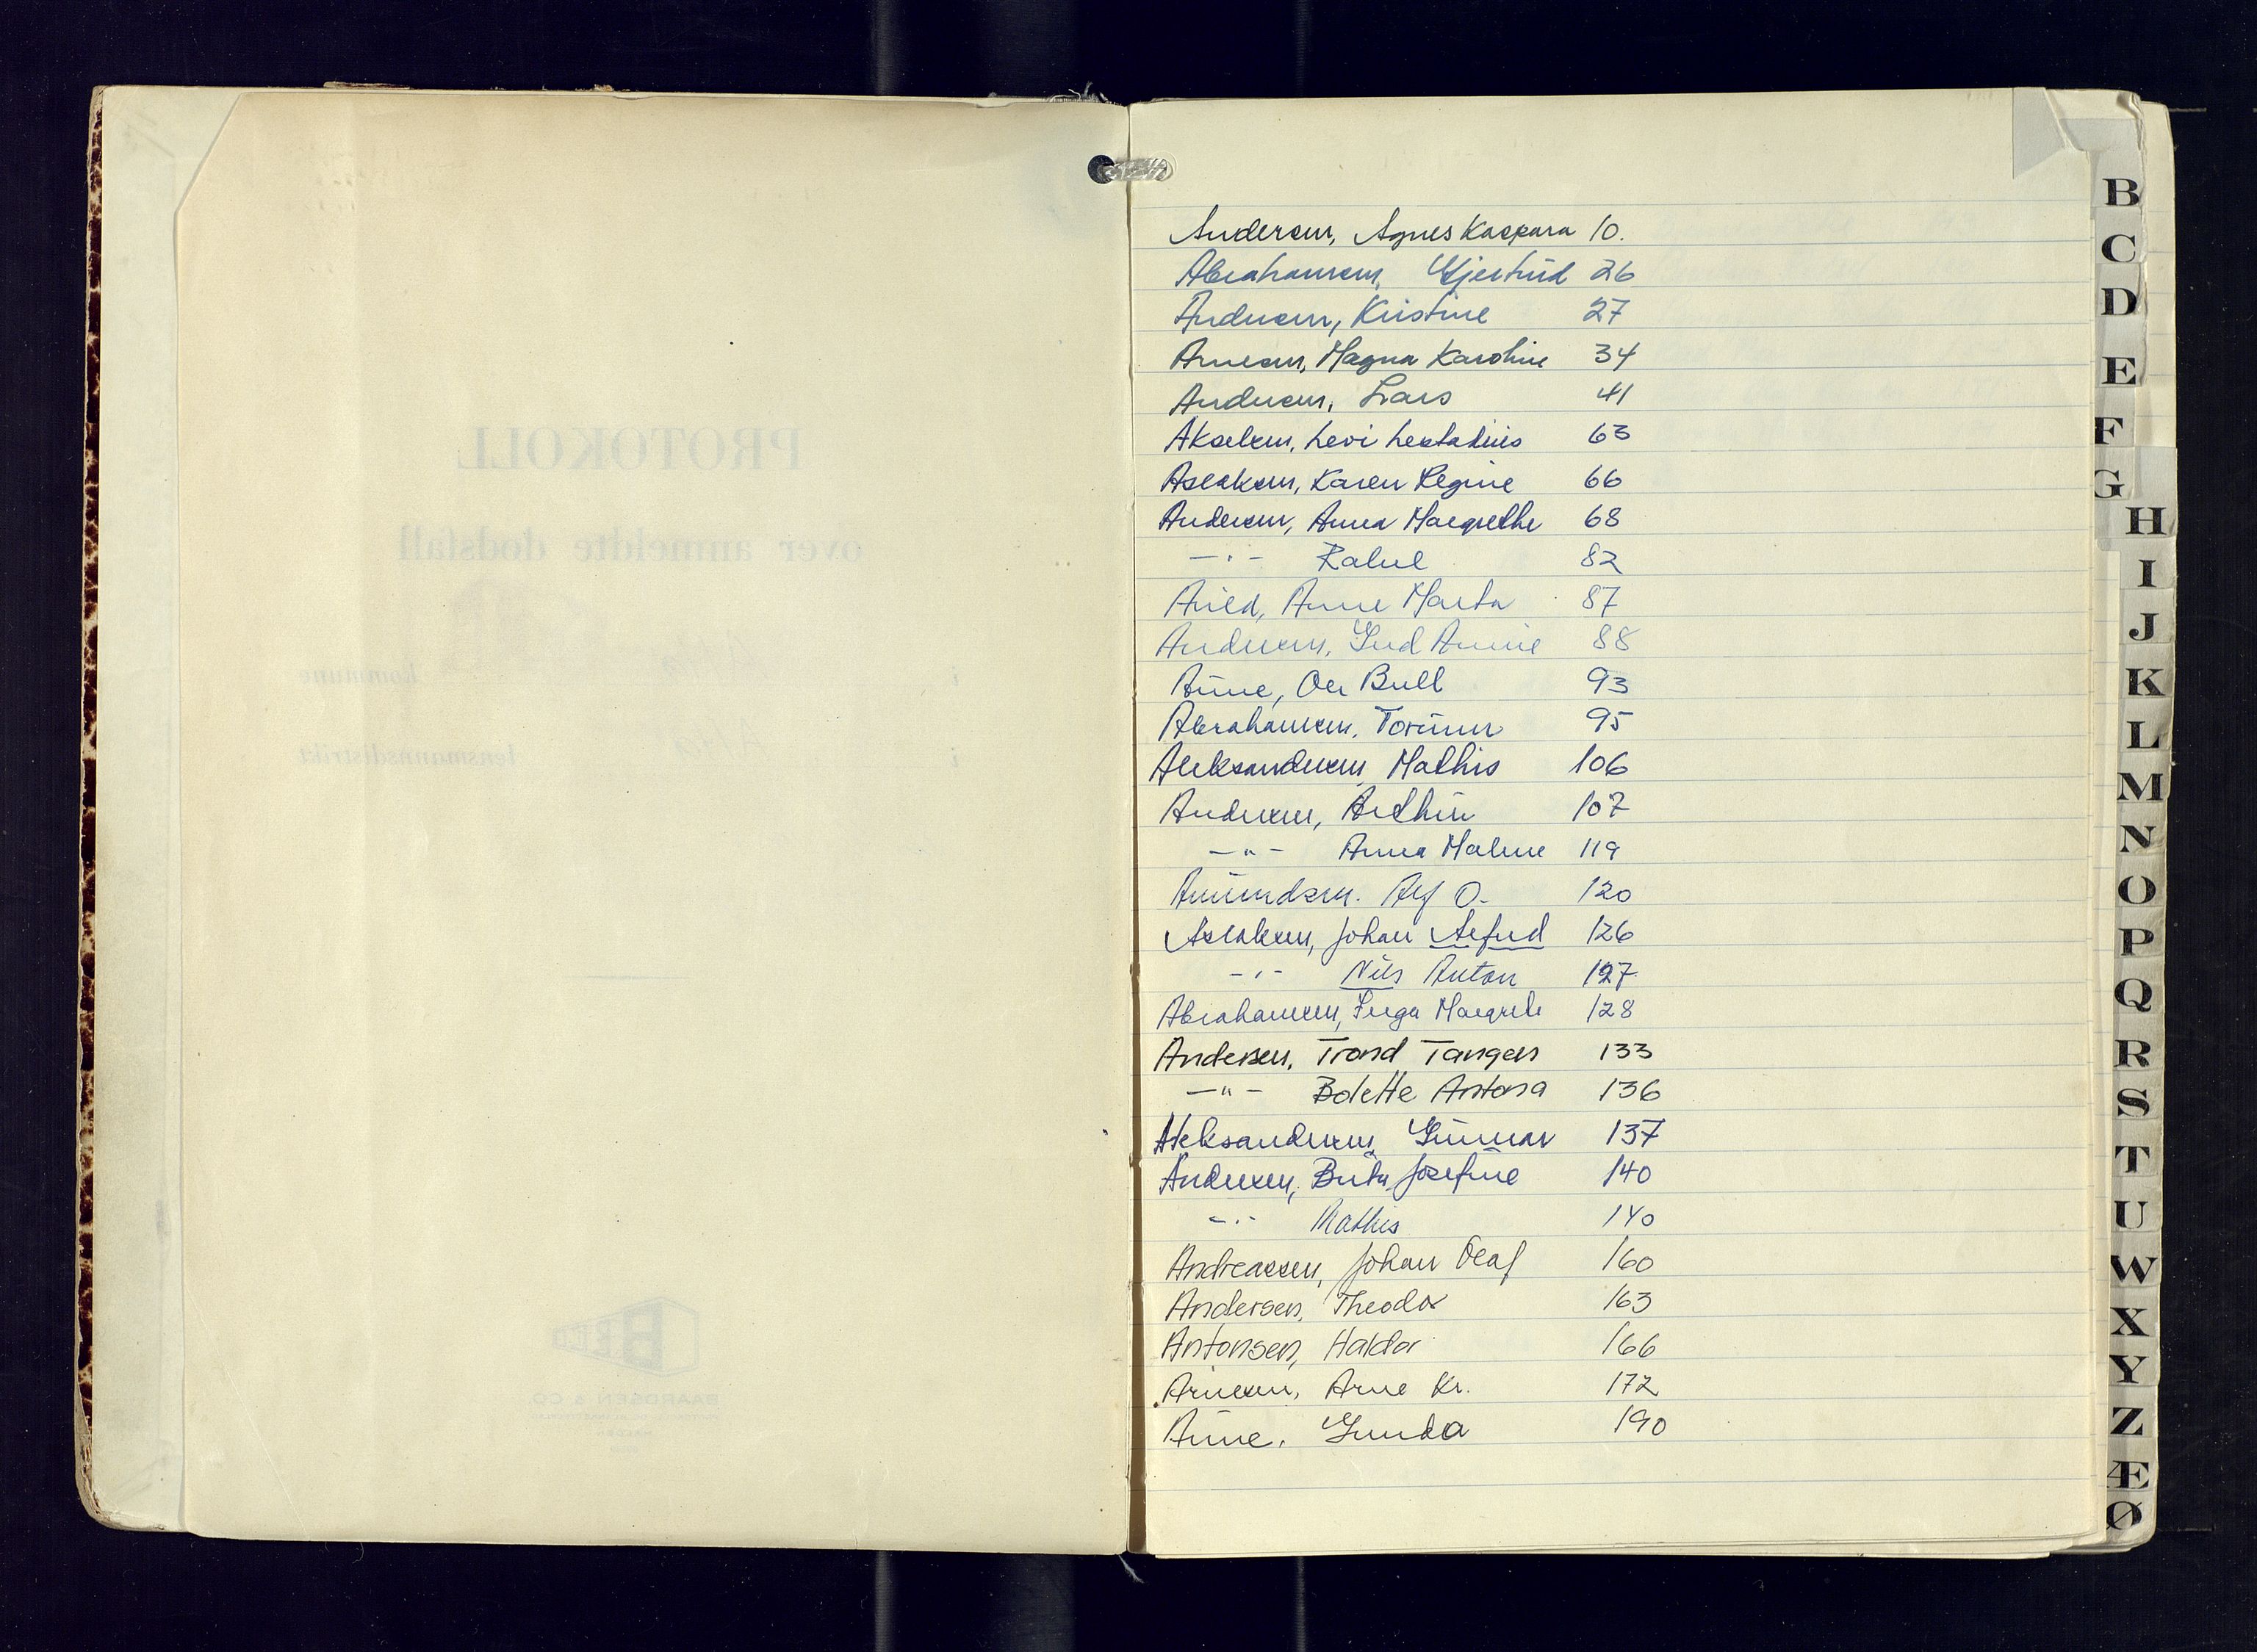 PROTOKOLL
over anmeldte dødsfall
i kommune
i lensmannsdistrikt
BAARDSEN & CO
Andersen, Agnes Kaspara 10.
Abrahamsen, Gjertrud 26
Andersen, Kristine 27
Arnesen, Magna Karoline 34
Andersen, Lars 41
Akselsen, Levi Lestadius 63
Aslaksen, Karen Regine 66
Andersen, Anna Margrethe 68
—"— Rakel 82
Arild, Anne Marta 87
Andersen, Gud Annie 88
Aune, Ole Bull 93
Abrahamsen, Torunn 95
Aleksandersen, Mathis 106
Andersen, Arthur 107
—"— Anna Maline 119
Amundsen. Alf O. 120
Aslaksen, Johan Alfred 126
—"— Nils Anton 127
Abrahamsen, Inga Margrete 128
Andersen, Trond Tangen 133
—"— Bolette Antona 136
Aleksandersen, Gunnar 137
Andersen, Brita Josefine 140
—"— Mathis 140
Andreassen, Johan Olaf 160
Andersen, Theodor 163
Antonsen, Haldor 166
Arnesen, Arne Kr. 172
Aune, Gunda 190
B
C
D
E
F
G
H
I
J
K
L
M
N
O
P
Q
R
S
T
U
W
X
Y
Z
Æ
Ø